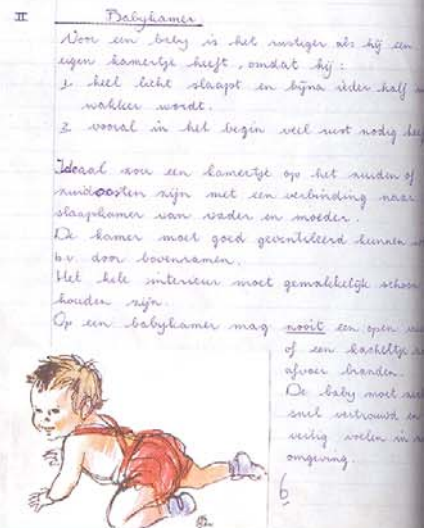 II Babykamer
Voor een baby is het rustiger als hij een
eigen kamertje heeft, omdat hij:
1. heel licht slaapt en bijna ieder half
wakker wordt.
2. vooral in het begin veel rust nodig
Ideaal zou een kamertje op het zuiden of
zuidoosten zijn met een verbinding naar
slaapkamer van vader en moeder.
De kamer moet goed geventileerd kunnen
b.v. door bovenramen.
Het hele interieur moet gemakkelijk schoon
houden zijn.
Op een babykamer mag nooit een open
of een kacheltje
afvoer branden.
De baby moet
snel vertrouwd en
veilig voelen in
omgeving.
6